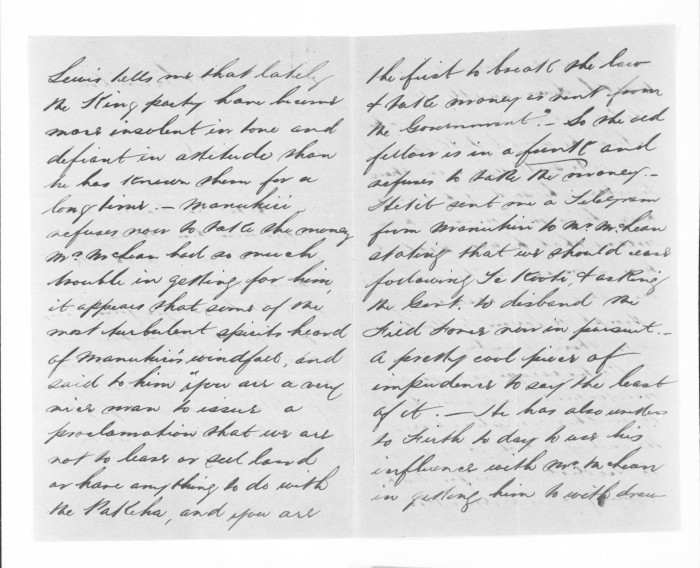 Lewis tells me that lately
the King party have become
more insolent in tone and
defiant in attitude than
he has known them for a
long time. — Manuhiri
refuses now to take the money
Mr. McLean had so much
trouble in getting for him,
it appears that some of the
most turbulent spirits heard
of Manuhiri's windfall, and
said to him "you are a very
nice man to issue a
proclamation that we are
not to lease or sell land
or have anything to do with
the Pakeha, and you are
the first to break the law
& take money as rent from
the Government". — So the old
fellow is in a funk and
refuses to take the money. —
sent me a Telegram
from Manuhiri to Mr. McLean
stating that we should cease
following Te Kooti, & asking
the Govt. to disband the
Field Force now in pursuit. —
A pretty cool piece of
impudence to say the least
of it. — He has also written
to Firth to day to use his
influence with Mr. McLean
in getting him to withdraw